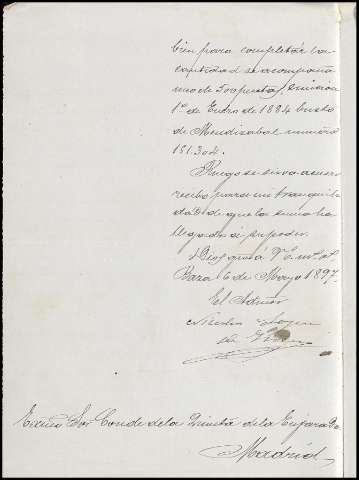 bien para completár la
cantidad se acompaña
uno de 500 pesetas, emision
1º de Enero de 1884 busto
de Mendizabal numero
151.304.
Ruego se sirva acusar
recibo para mi tranquili
dad de que la suma ha
llegado á su poder.
Dios gue á V.E. ms. as.
Baza 6 de Mayo 1897.
El Admor
Nicolas
de
Excmo Sor Conde de la Quinta de la Enjarada
Madrid